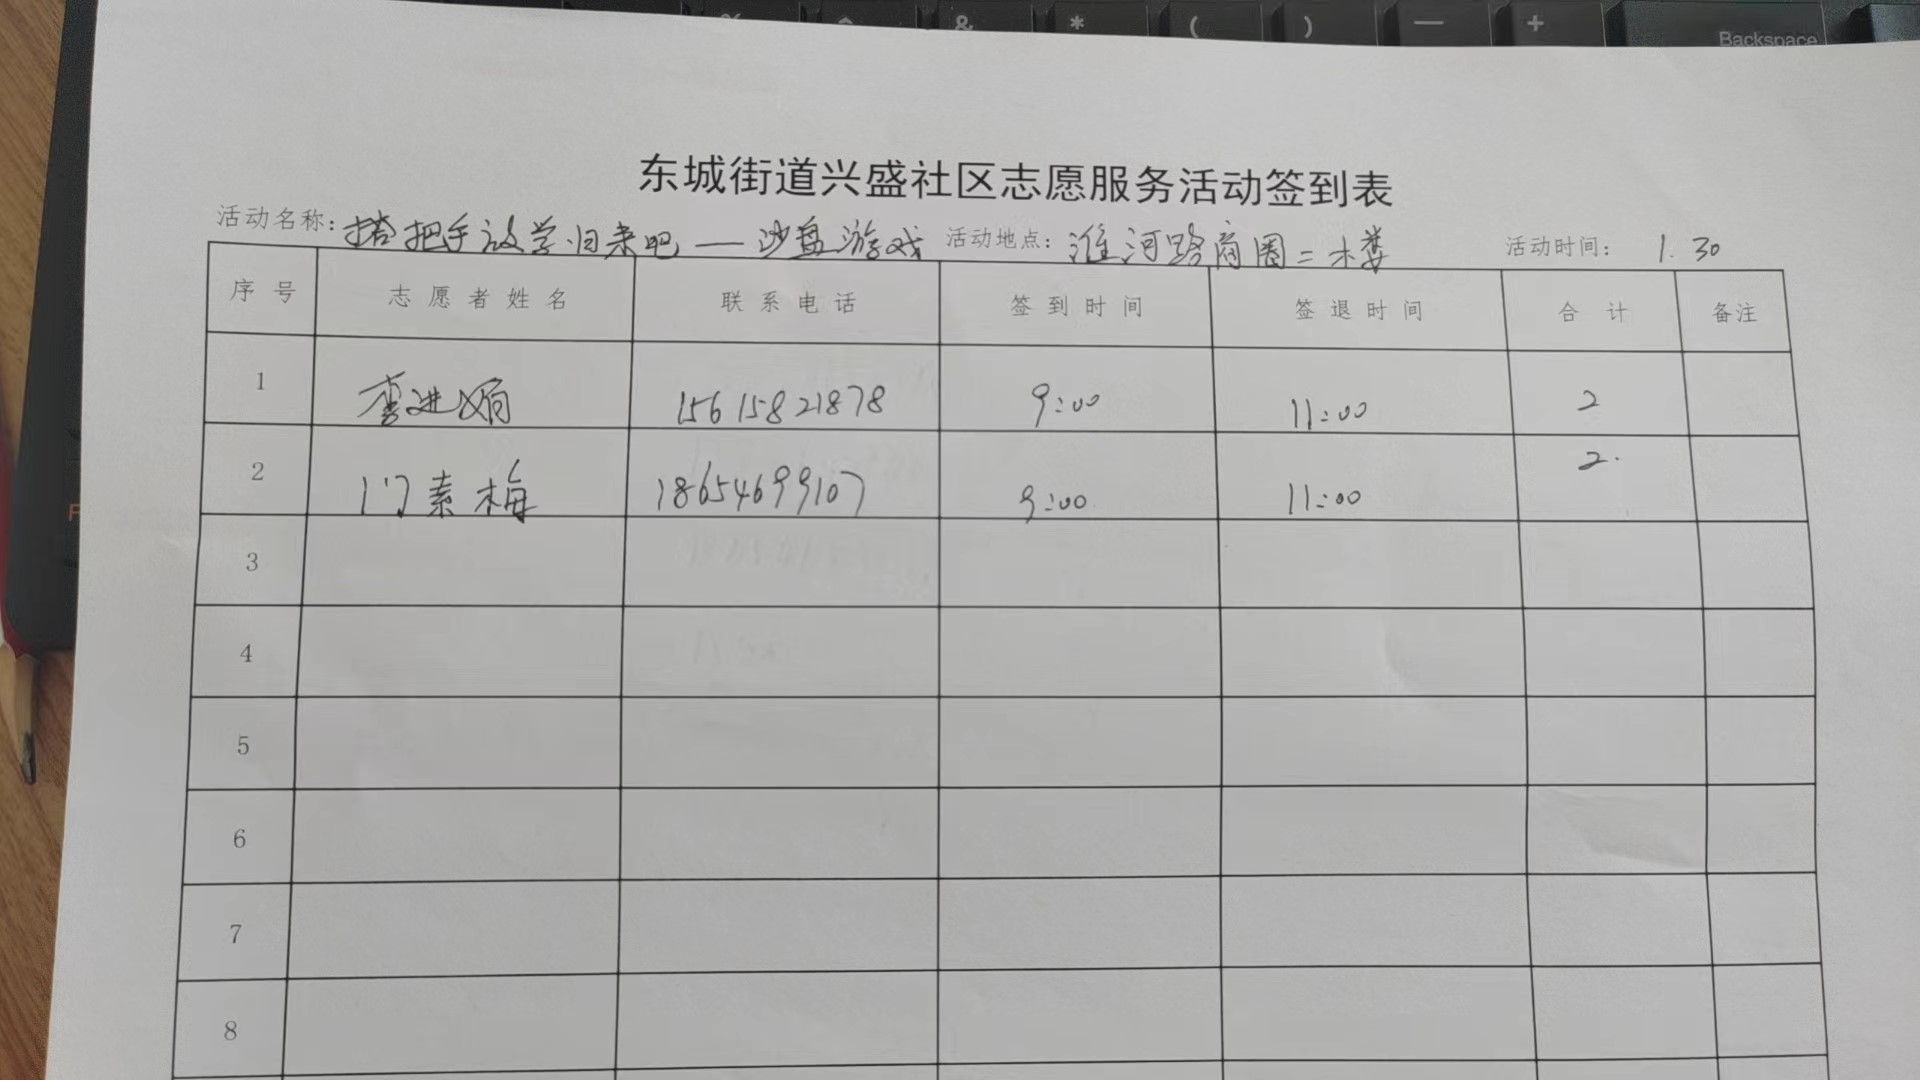 % ^ & * ( ) — + Backspace
东城街道兴盛社区志愿服务活动签到表
活动名称: 搭把手放学归来吧—沙盘游戏 活动地点: 淮河路商圈二楼 活动时间: 1.30
序号 志愿者姓名 联系电话 签到时间 签退时间 合计 备注
1 李进娟 15615821878 9:00 11:00 2
2 门素梅 18654699107 9:00 11:00 2.
3
4
5
6
7
8